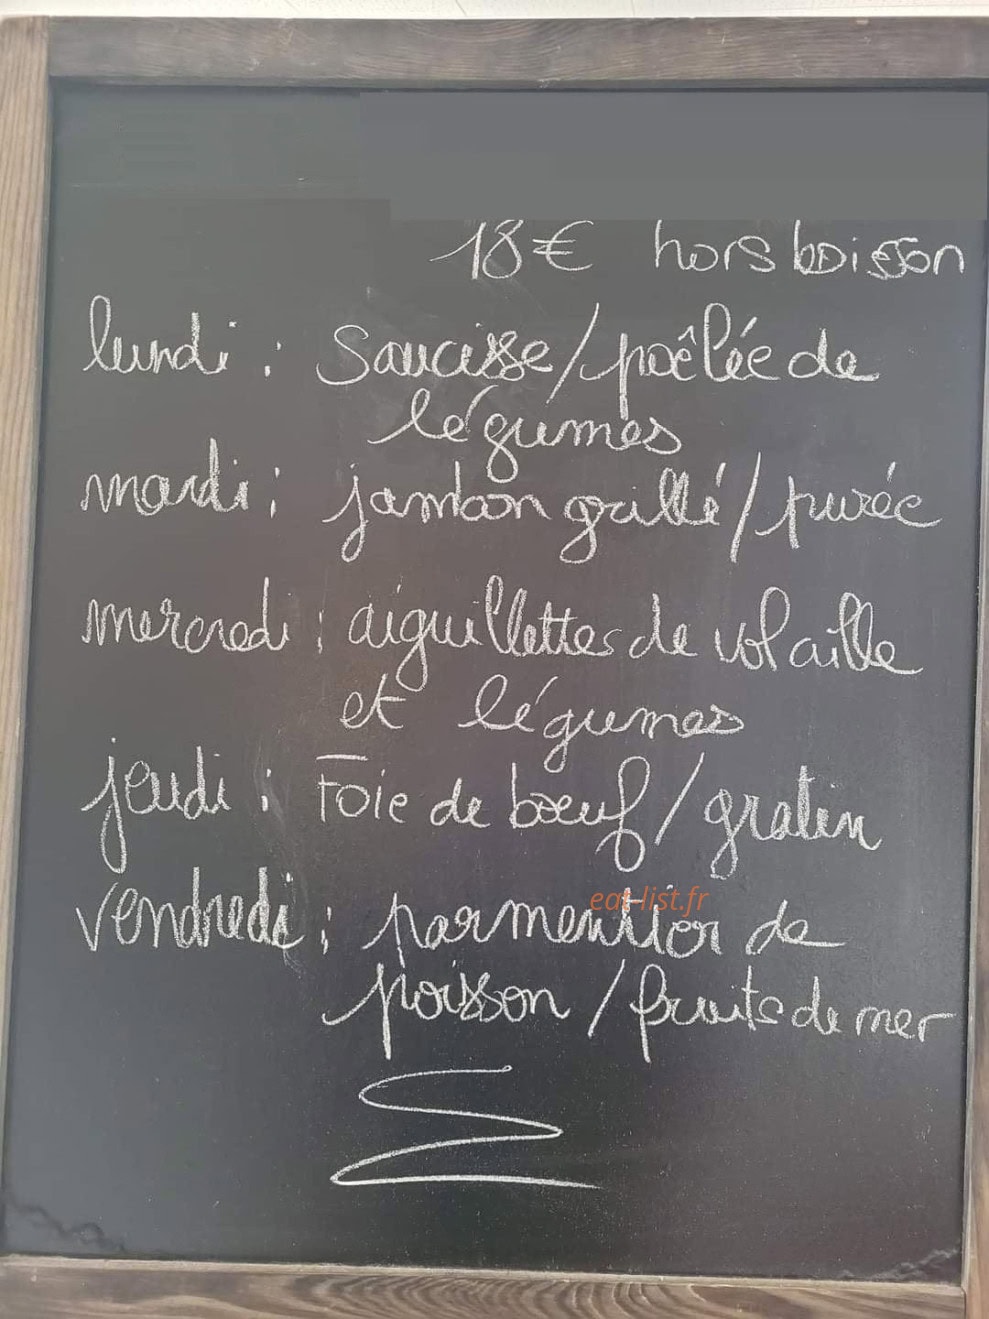 18€ hors boisson
lundi : Saucisse/poêlée de
légumes
mardi : jambon grillé/purée
mercredi : aiguillettes de volaille
et légumes
jeudi : Foie de bœuf/gratin
vendredi : parmentier de
eat-list.fr
poisson/fruits de mer